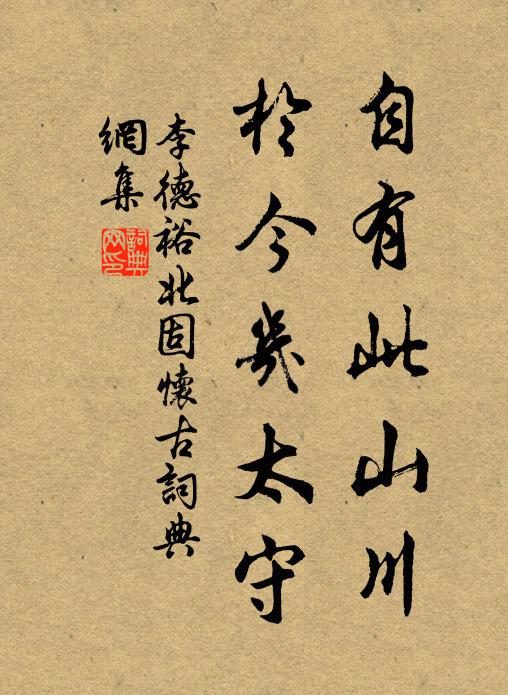 自有此山川
於今幾太守
李德裕北固懷古詞典
網集
詞典
网印